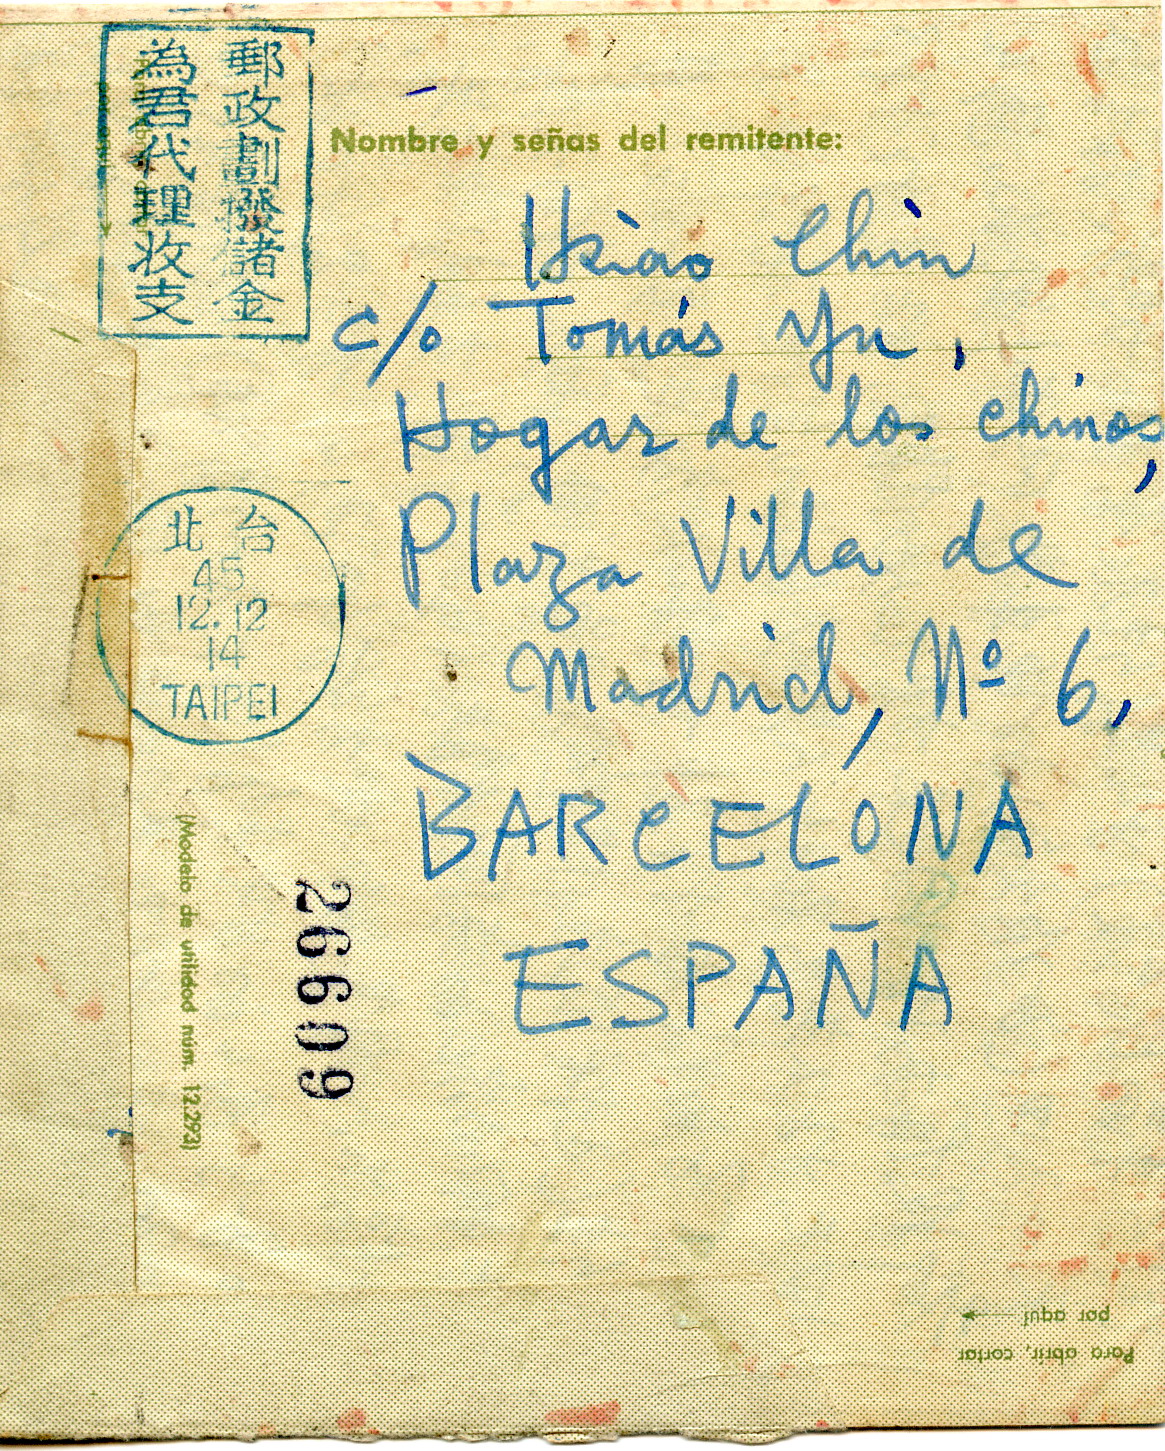 郵政劃撥儲金
為君代理收支
Nombre y señas del remitente:
Hsiao Chin
c/o Tomás Yu,
Hogar de los chinos,
Plaza Villa de
Madrid, Nº 6,
BARCELONA
ESPAÑA
北 台
45
12.12
14
TAIPEI
(Modelo de utilidad núm. 12.293)
26609
Para abrir, cortar
por aquí